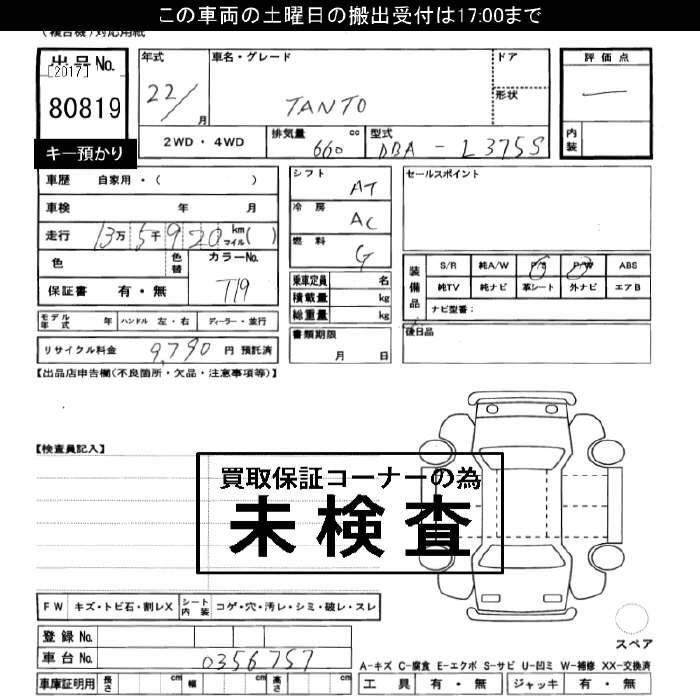 この車両の土曜日の搬出受付は17:00まで
(複合機)対応用紙
出品No.
[2017]
80819
キー預かり
年式
22/
月
車名・グレード
TANTO
ドア
形状
評価点
—
内装
2WD・4WD
排気量
660
cc
型式
DBA - L375S
車歴 自家用・( )
車検 年 月
走行 13万5千920 km マイル( )
色 色替 カラーNo.
T19
保証書 有・無
シフト AT
冷房 AC
燃料 G
乗車定員 名
積載量 kg
総重量 kg
書類期限
月 日
セールスポイント
装備品
S/R 純A/W P/S P/W ABS
純TV 純ナビ 革シート 外ナビ エアB
ナビ型番:
後日品
モデル年式 年 ハンドル 左・右 ディーラー・並行
リサイクル料金 9,790 円 預託済
【出品店申告欄(不良箇所・欠品・注意事項等)】
【検査員記入】
買取保証コーナーの為
未検査
FW キズ・トビ石・割レX シート内装 コゲ・穴・汚レ・シミ・破レ・スレ
登録No.
車台No. 0356757
車庫証明用 長さ cm 幅 cm 高さ cm
スペア
A-キズ C-腐食 E-エクボ S-サビ U-凹ミ W-補修 XX-交換済
工具 有・無 ジャッキ 有・無